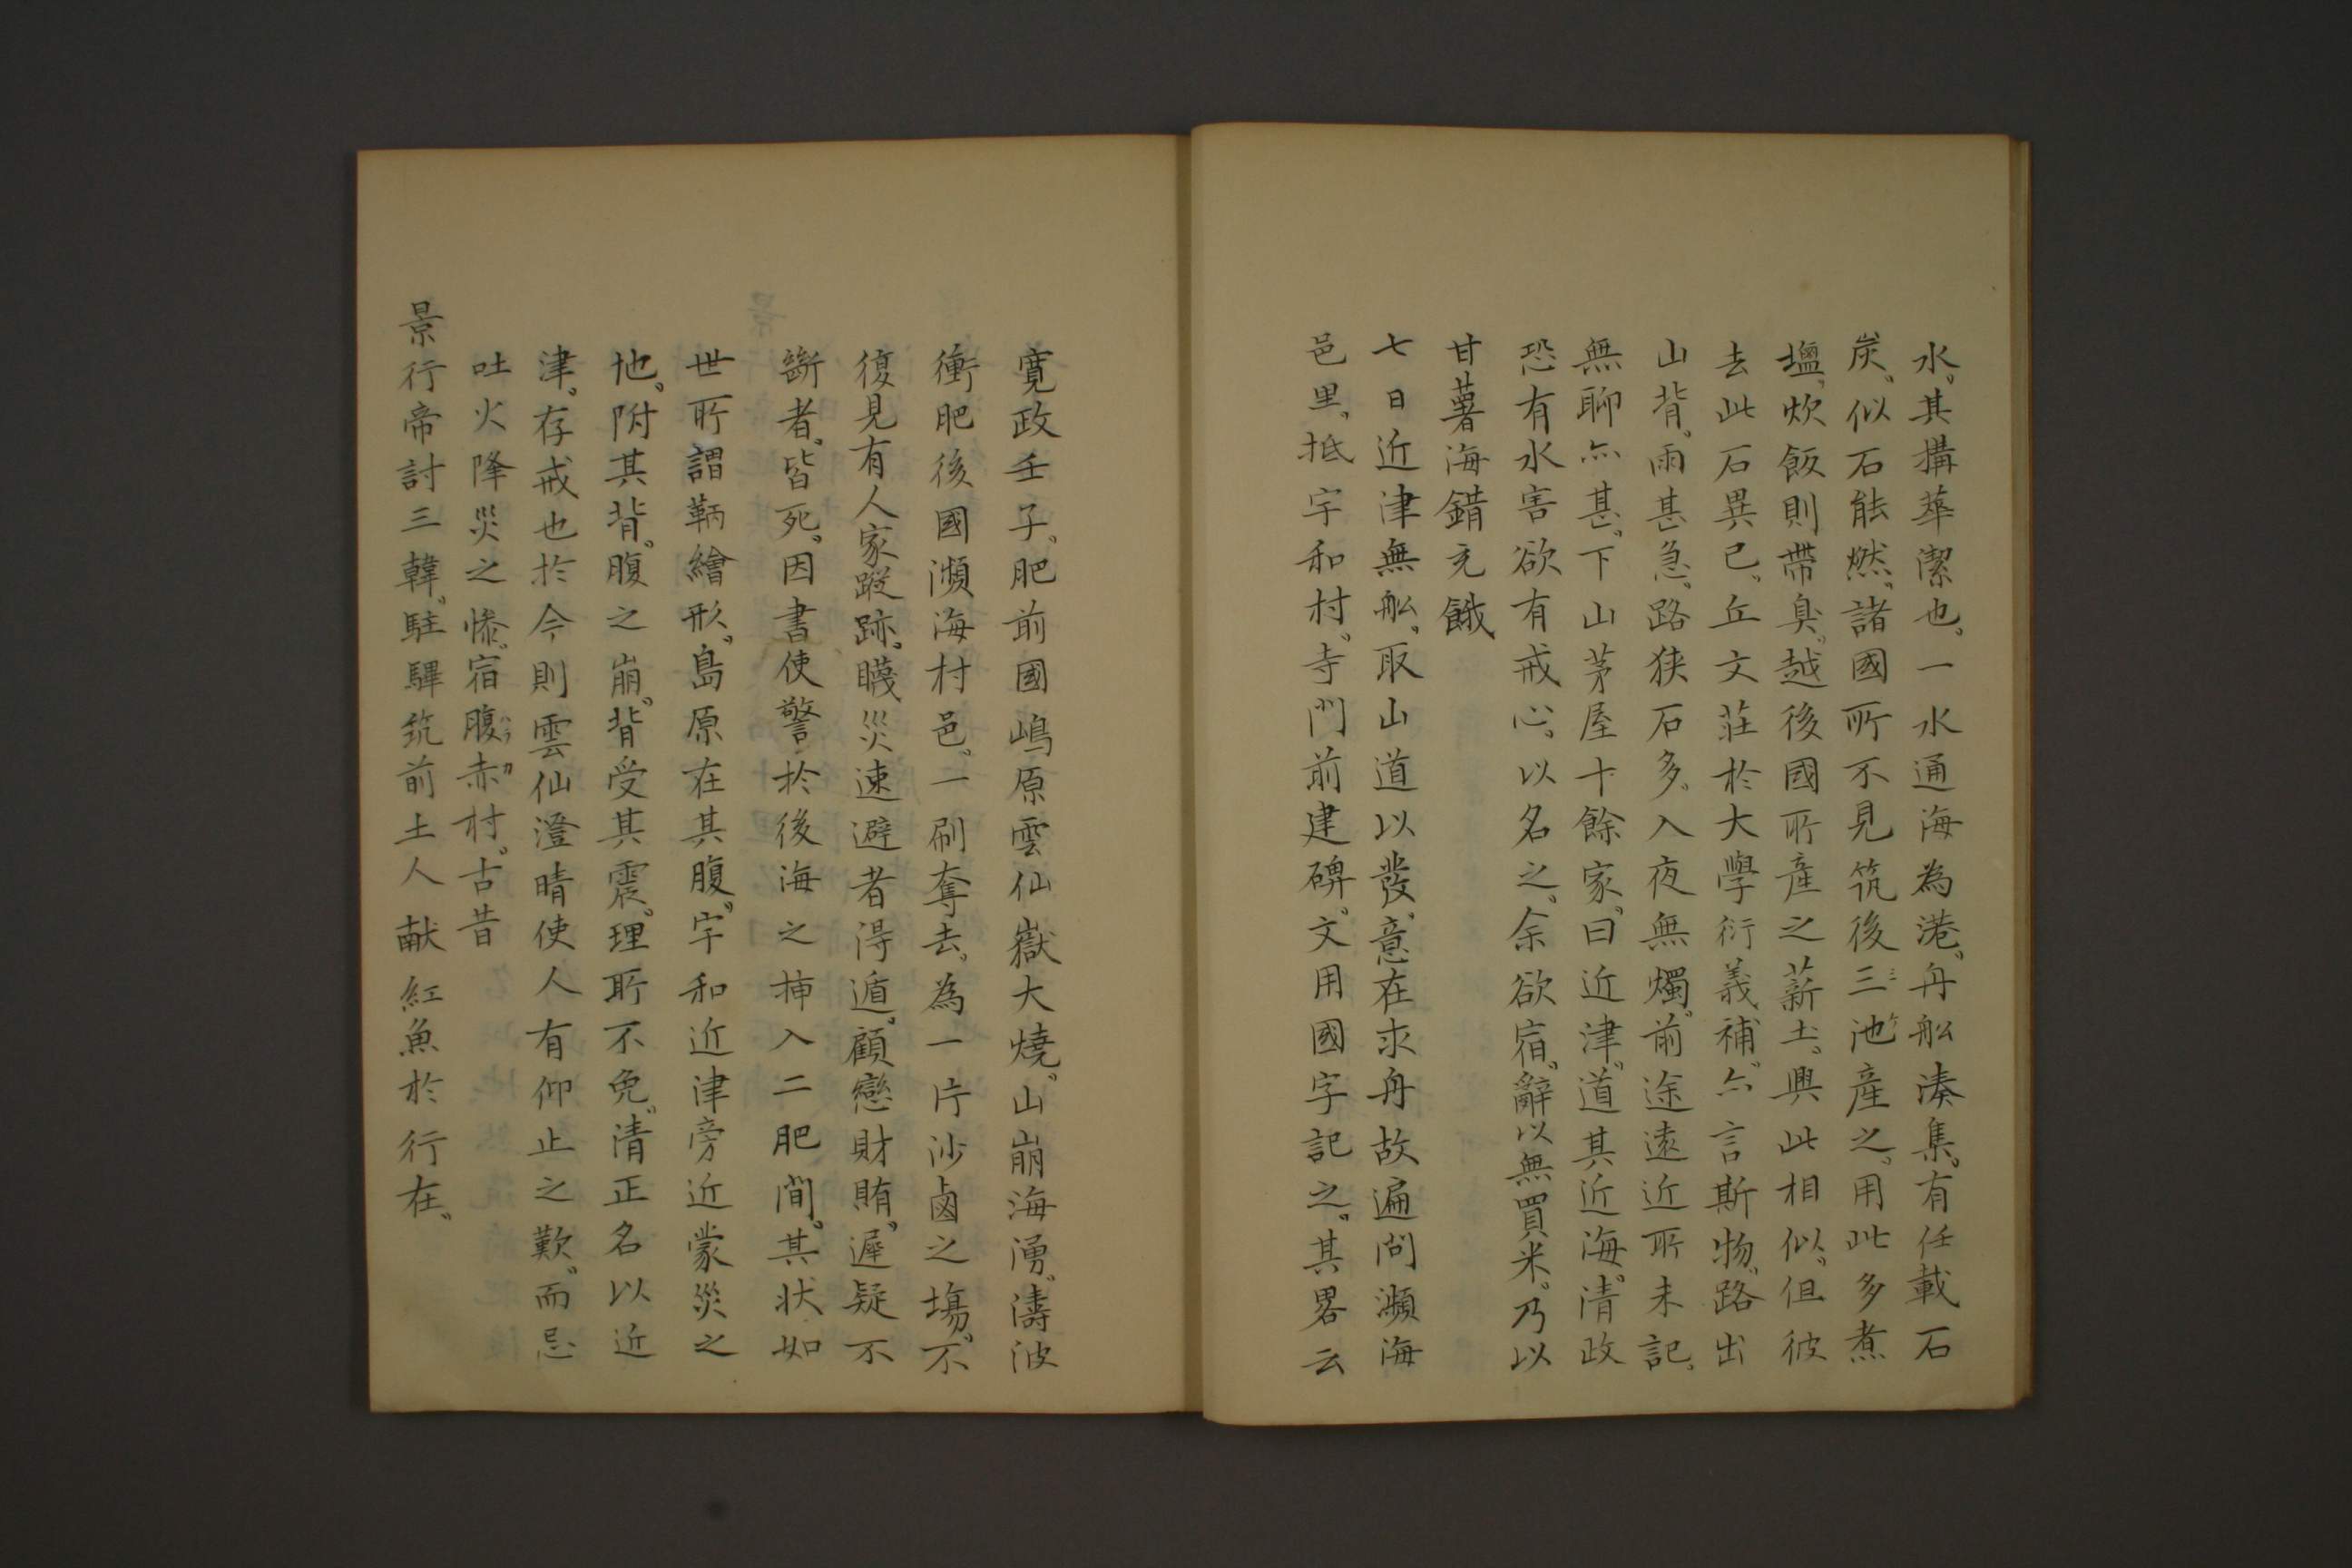 水。其搆華潔也。一水通海為港。舟舩湊集。有任載石
炭。似石能燃。諸國所不見筑後三池産之。用此多煮
塩。炊飯則帶臭。越後國所産之薪土。興此相似。但彼
去此石異已。丘文莊於大學衍義補。亦言斯物。路出
山背。雨甚急。路狭石多。入夜無燭。前途遠近所未記。
無聊亦甚。下山茅屋十餘家。曰近津。道其近海。清政
恐有水害欲有戒心。以名之。余欲宿。辭以無買米。乃以
甘薯海錯充餓。
七日近津無舩。取山道以發。意在求舟故遍問瀕海
邑里。抵宇和村。寺門前建碑。文用國字記之。其畧云
寛政壬子。肥前國嶋原雲仙嶽大燒。山崩海湧。濤波
衝肥後國瀕海村邑。一刷奪去。為一片沙鹵之塲。不
復見有人家蹤跡。睋災速避者得遁。顧戀財賄。遲疑不
斷者。皆死。因書使警於後海之挿入二肥間。其状如
世所謂鞆繪形。島原在其腹。宇和近津旁近蒙災之
地。附其背。腹之崩。背受其震。理所不免。清正名以近
津。存戒也於今則雲仙澄晴使人有仰止之歎。而忌
吐火降災之慘。宿腹赤村。古昔
景行帝討三韓。駐驆筑前土人献紅魚於行在。